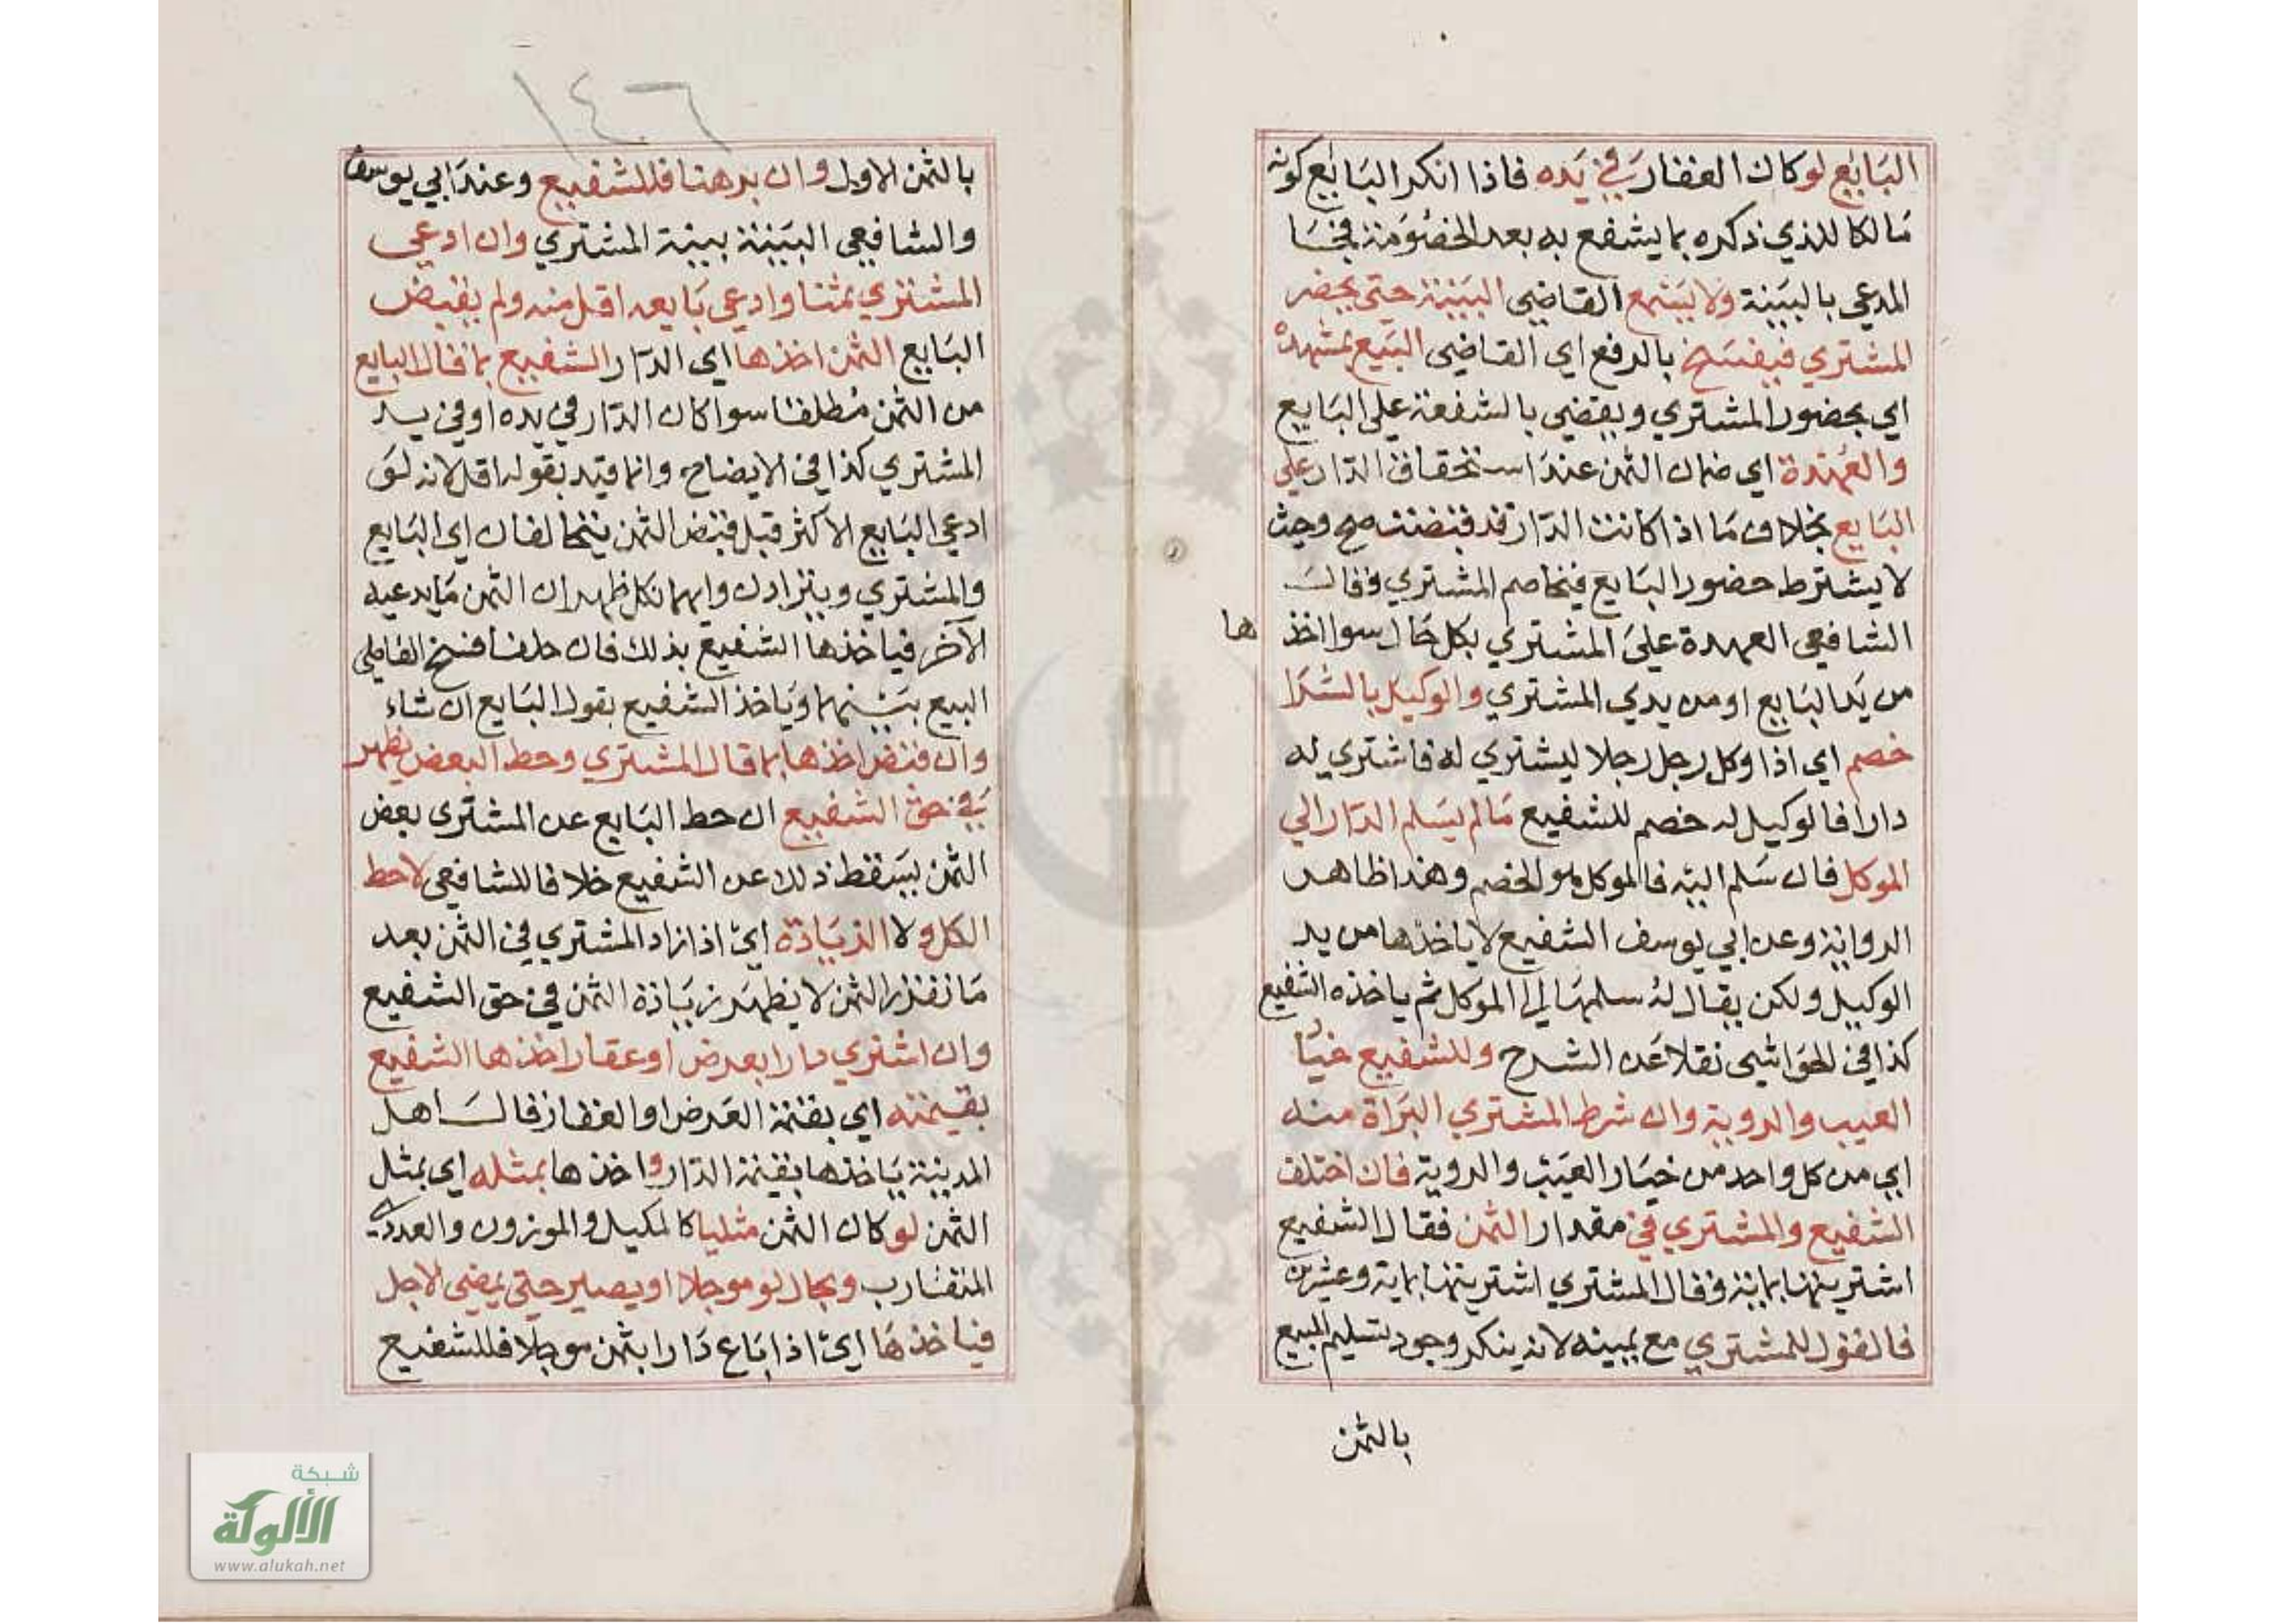 البايع لو كان العقار في يده فاذا انكر البايع كونه
مالكا للذي ذكره بما يشفع به بعد الخصومة فجا
المدعي بالبينة ولا يسمع القاضي البينة حتى يحضر
المشتري فيفسخ بالدفع اي القاضي البيع بمشهده
اي بحضور المشتري ويقضي بالشفعة على البايع
والعهدة اي ضمان الثمن عند استحقاق الدار على
البايع بخلاف ما اذا كانت الدار قد قبضت صح وحيث
لا يشترط حضور البايع فيخاصم المشتري وقال
الشافعي العهدة على المشتري بكل حال سوا اخذها
من يد البايع او من يدي المشتري والوكيل بالشرا
خصم اي اذا وكل رجل رجلا ليشتري له فاشتري له
دارا فالوكيل له خصم للشفيع ما لم يسلم الدار الي
الموكل فان سلم اليه فالموكل هو الخصم وهذا ظاهر
الرواية وعن ابي يوسف الشفيع لا ياخذها من يد
الوكيل ولكن يقال له سلمها الي الموكل ثم ياخذه الشفيع
كذا في الحواشي نقلا عن الشرح وللشفيع خيار
العيب والروية وان شرط المشتري البراة منه
اي من كل واحد من خيار العيب والروية فان اختلف
الشفيع والمشتري في مقدار الثمن فقال الشفيع
اشتريتها بماية وقال المشتري اشتريتها بماية وعشرين
فالقول للمشتري مع يمينه لانه ينكر وجود تسليم المبيع
بالثمن
١٤٦
بالثمن الاول وان برهنا فللشفيع وعند ابي يوسف
والشافعي البينة بينة المشتري وان ادعي
المشتري ثمنا وادعي بايعه اقل منه ولم يقبض
البايع الثمن اخذها اي الدار الشفيع بما قال البايع
من الثمن مطلقا سوا كان الدار في يده او في يد
المشتري كذا في الايضاح وانما قيد بقوله اقل لانه لو
ادعي البايع الاكثر قبل قبض الثمن يتحالفان اي البايع
والمشتري ويترادان وايهما نكل ظهر ان الثمن ما يدعيه
الآخر فياخذها الشفيع بذلك فان حلفا فسخ القاضي
البيع بينهما وياخذ الشفيع بقول البايع ان شاء
وان قبض اخذها بما قال المشتري وحط البعض يظهر
في حق الشفيع ان حط البايع عن المشتري بعض
الثمن يسقط ذلك عن الشفيع خلافا للشافعي لاحط
الكل ولا الزيادة اي اذا زاد المشتري في الثمن بعد
ما نقد الثمن لا يظهر زيادة الثمن في حق الشفيع
وان اشتري دارا بعرض او عقار اخذها الشفيع
بقيمته اي بقيمة العرض او العقار وقال اهل
المدينة ياخذها بقيمة الدار واخذها بمثله اي بمثل
الثمن لو كان الثمن مثليا كالمكيل والموزون والعددي
المتقارب وبحال لو موجلا او يصبر حتى يمضي الاجل
فياخذها اي اذا باع دارا بثمن موجلا فللشفيع
شبكة
الألوكة
www.alukah.net